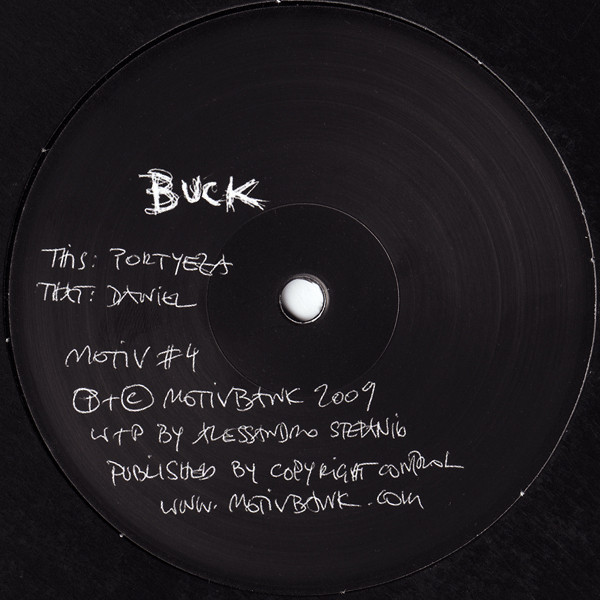 BUCK
THIS: PORTYEZA
THAT: DANIEL
MOTIV #4
Ⓟ+© MOTIVBANK 2009
W+P BY ALESSANDRO STEFANIO
PUBLISHED BY COPYRIGHT CONTROL
WWW.MOTIVBANK.COM